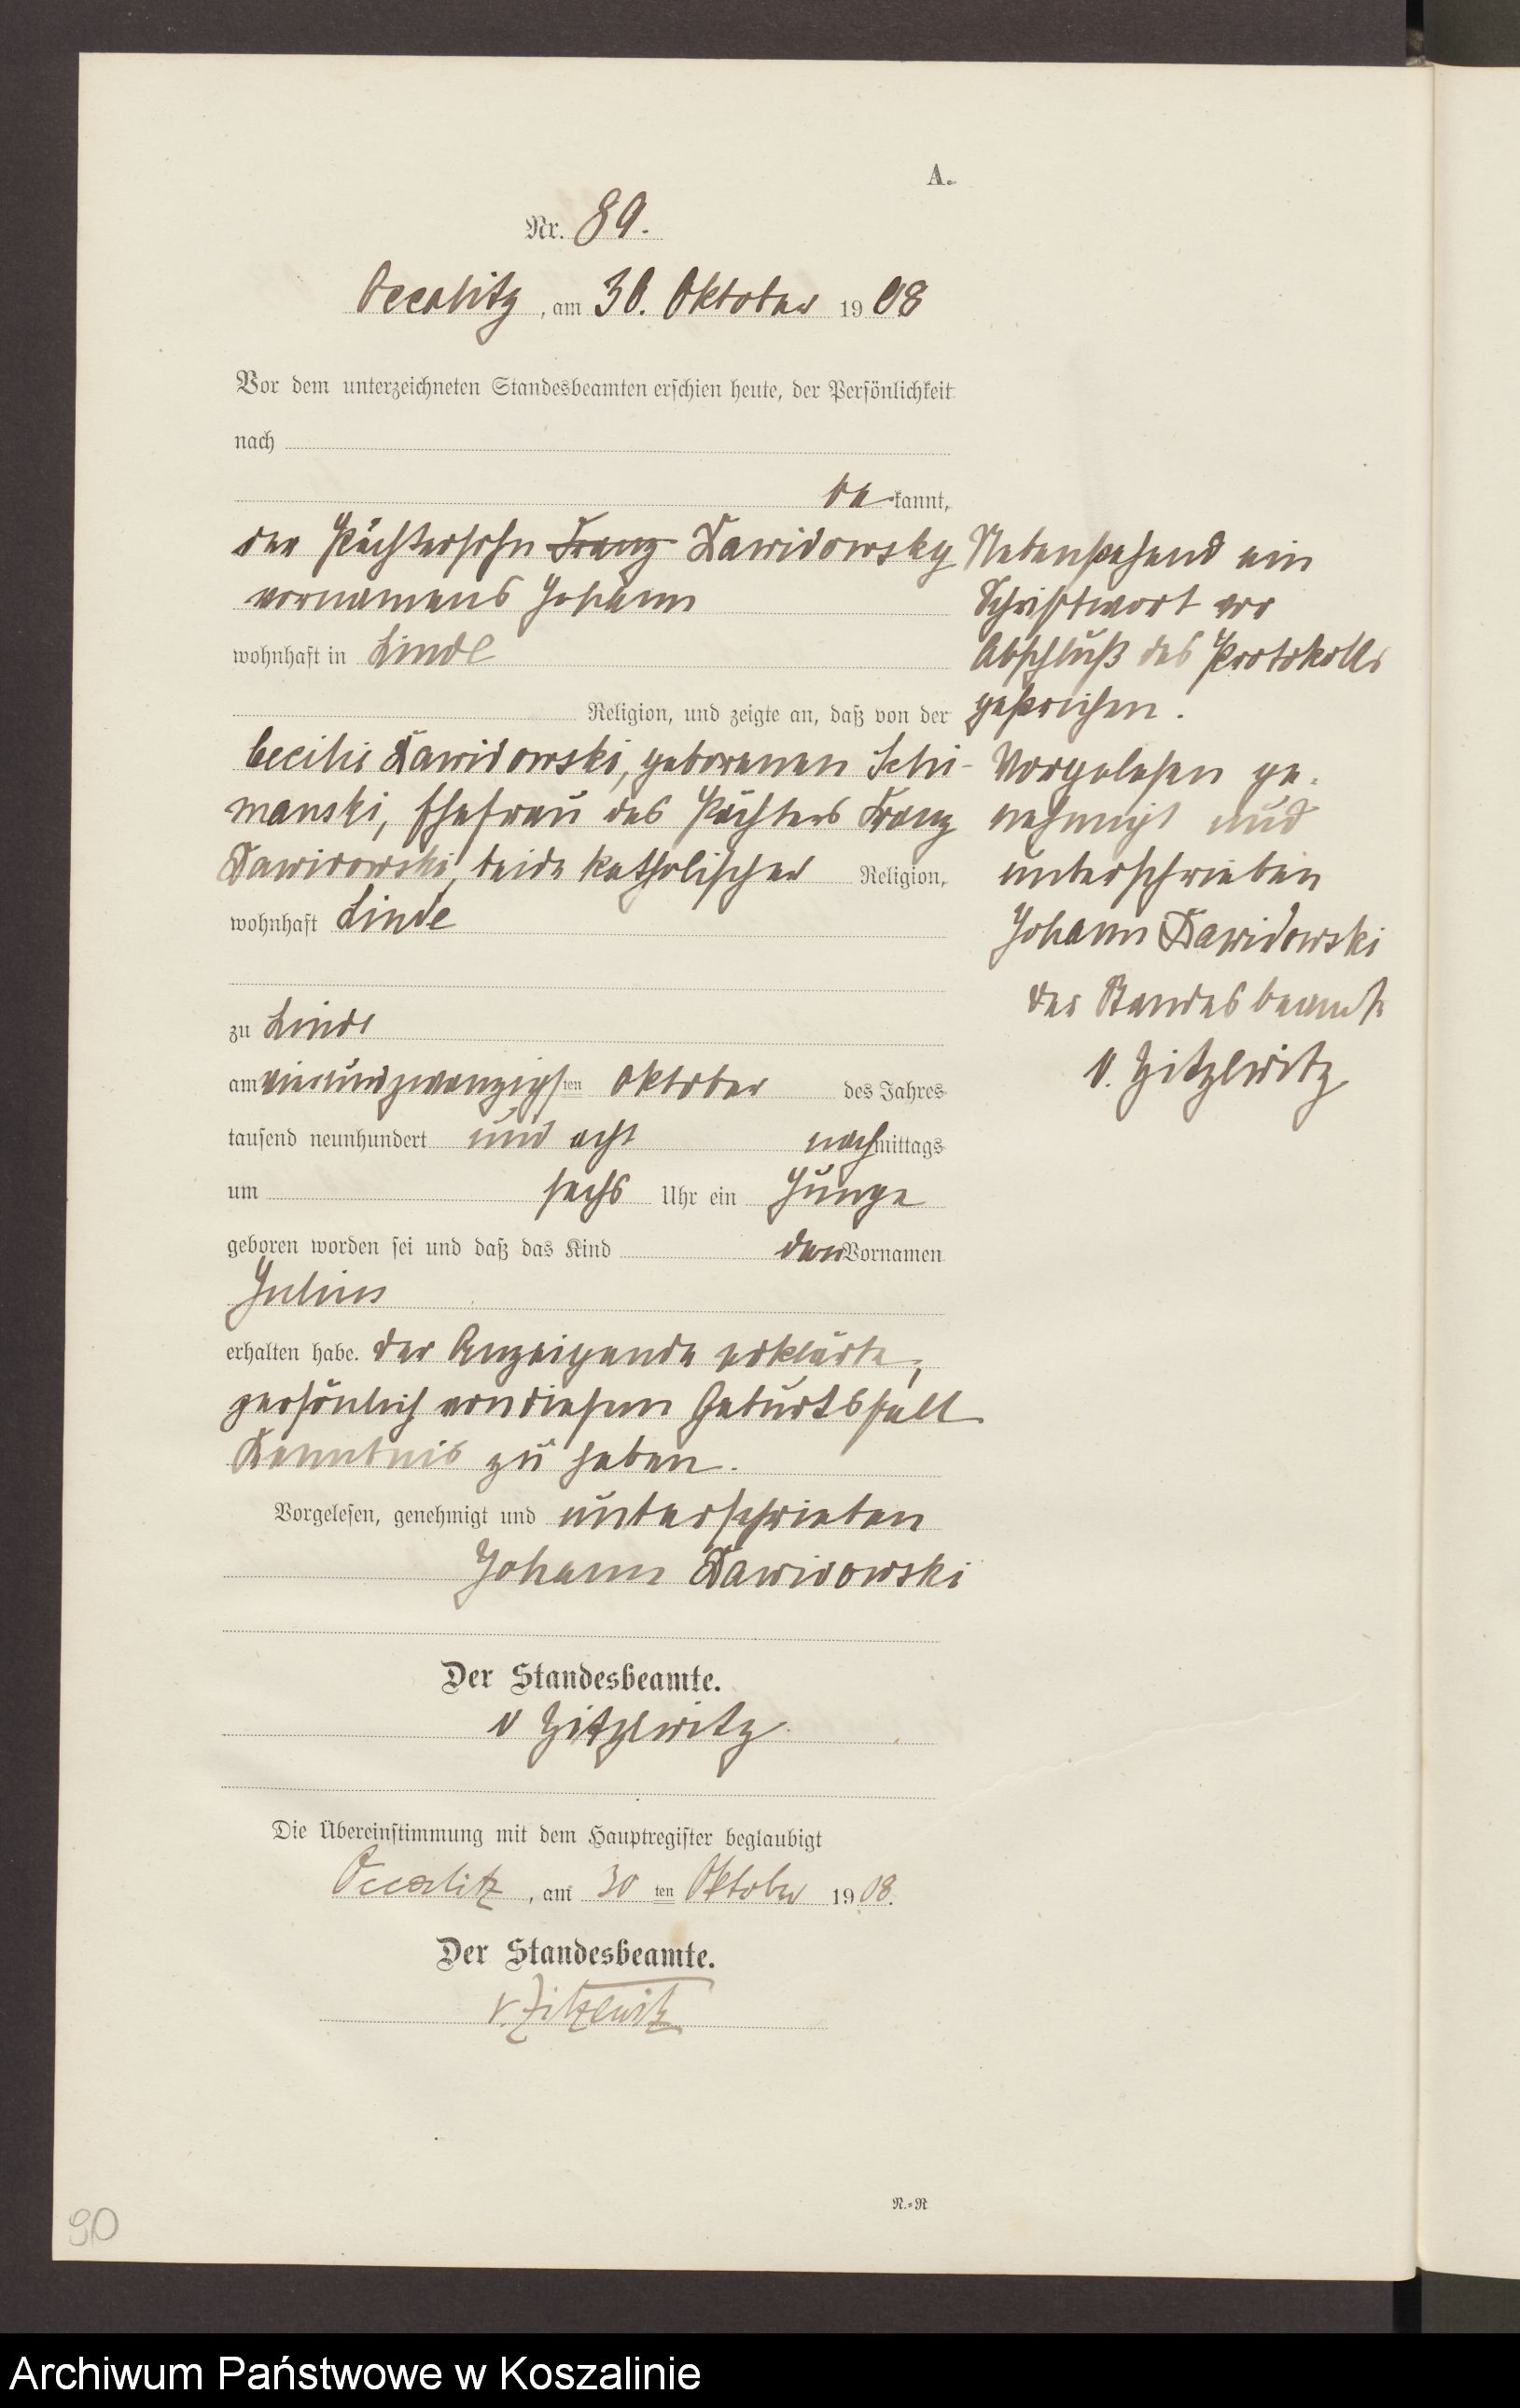 A.
Nr. 89.
Occalitz, am 30. Oktober 1908
Vor dem unterzeichneten Standesbeamten erschien heute, der Persönlichkeit
nach
bekannt,
der Pächtersohn Franz Dawidowsky
vornamens Johann
wohnhaft in Linde
Religion, und zeigte an, daß von der
Cecilie Dawidowski, geborenen Schi-
manski, Ehefrau des Pächters Franz
Dawidowski, beide katholischer Religion,
wohnhaft Linde
zu Linde
am vierundzwanzigsten Oktober des Jahres
tausend neunhundert und acht nachmittags
um sechs Uhr ein Junge
geboren worden sei und daß das Kind den Vornamen
Julius
erhalten habe. Der Anzeigende erklärte,
persönlich von diesem Geburtsfall
Kenntnis zu haben.
Vorgelesen, genehmigt und unterschrieben
Johann Dawidowski
Der Standesbeamte.
v Zitzewitz
Die Übereinstimmung mit dem Hauptregister beglaubigt
Occalitz, am 30 ten Oktober 1908.
Der Standesbeamte.
v. Zitzewitz
Nebenstehend ein
Schriftwort vor
Abschluß des Protokolls
gestrichen.
Vorgelesen ge-
nehmigt und
unterschrieben
Johann Dawidowski
der Standesbeamte
v. Zitzewitz
N.=R
90
Archiwum Państwowe w Koszalinie